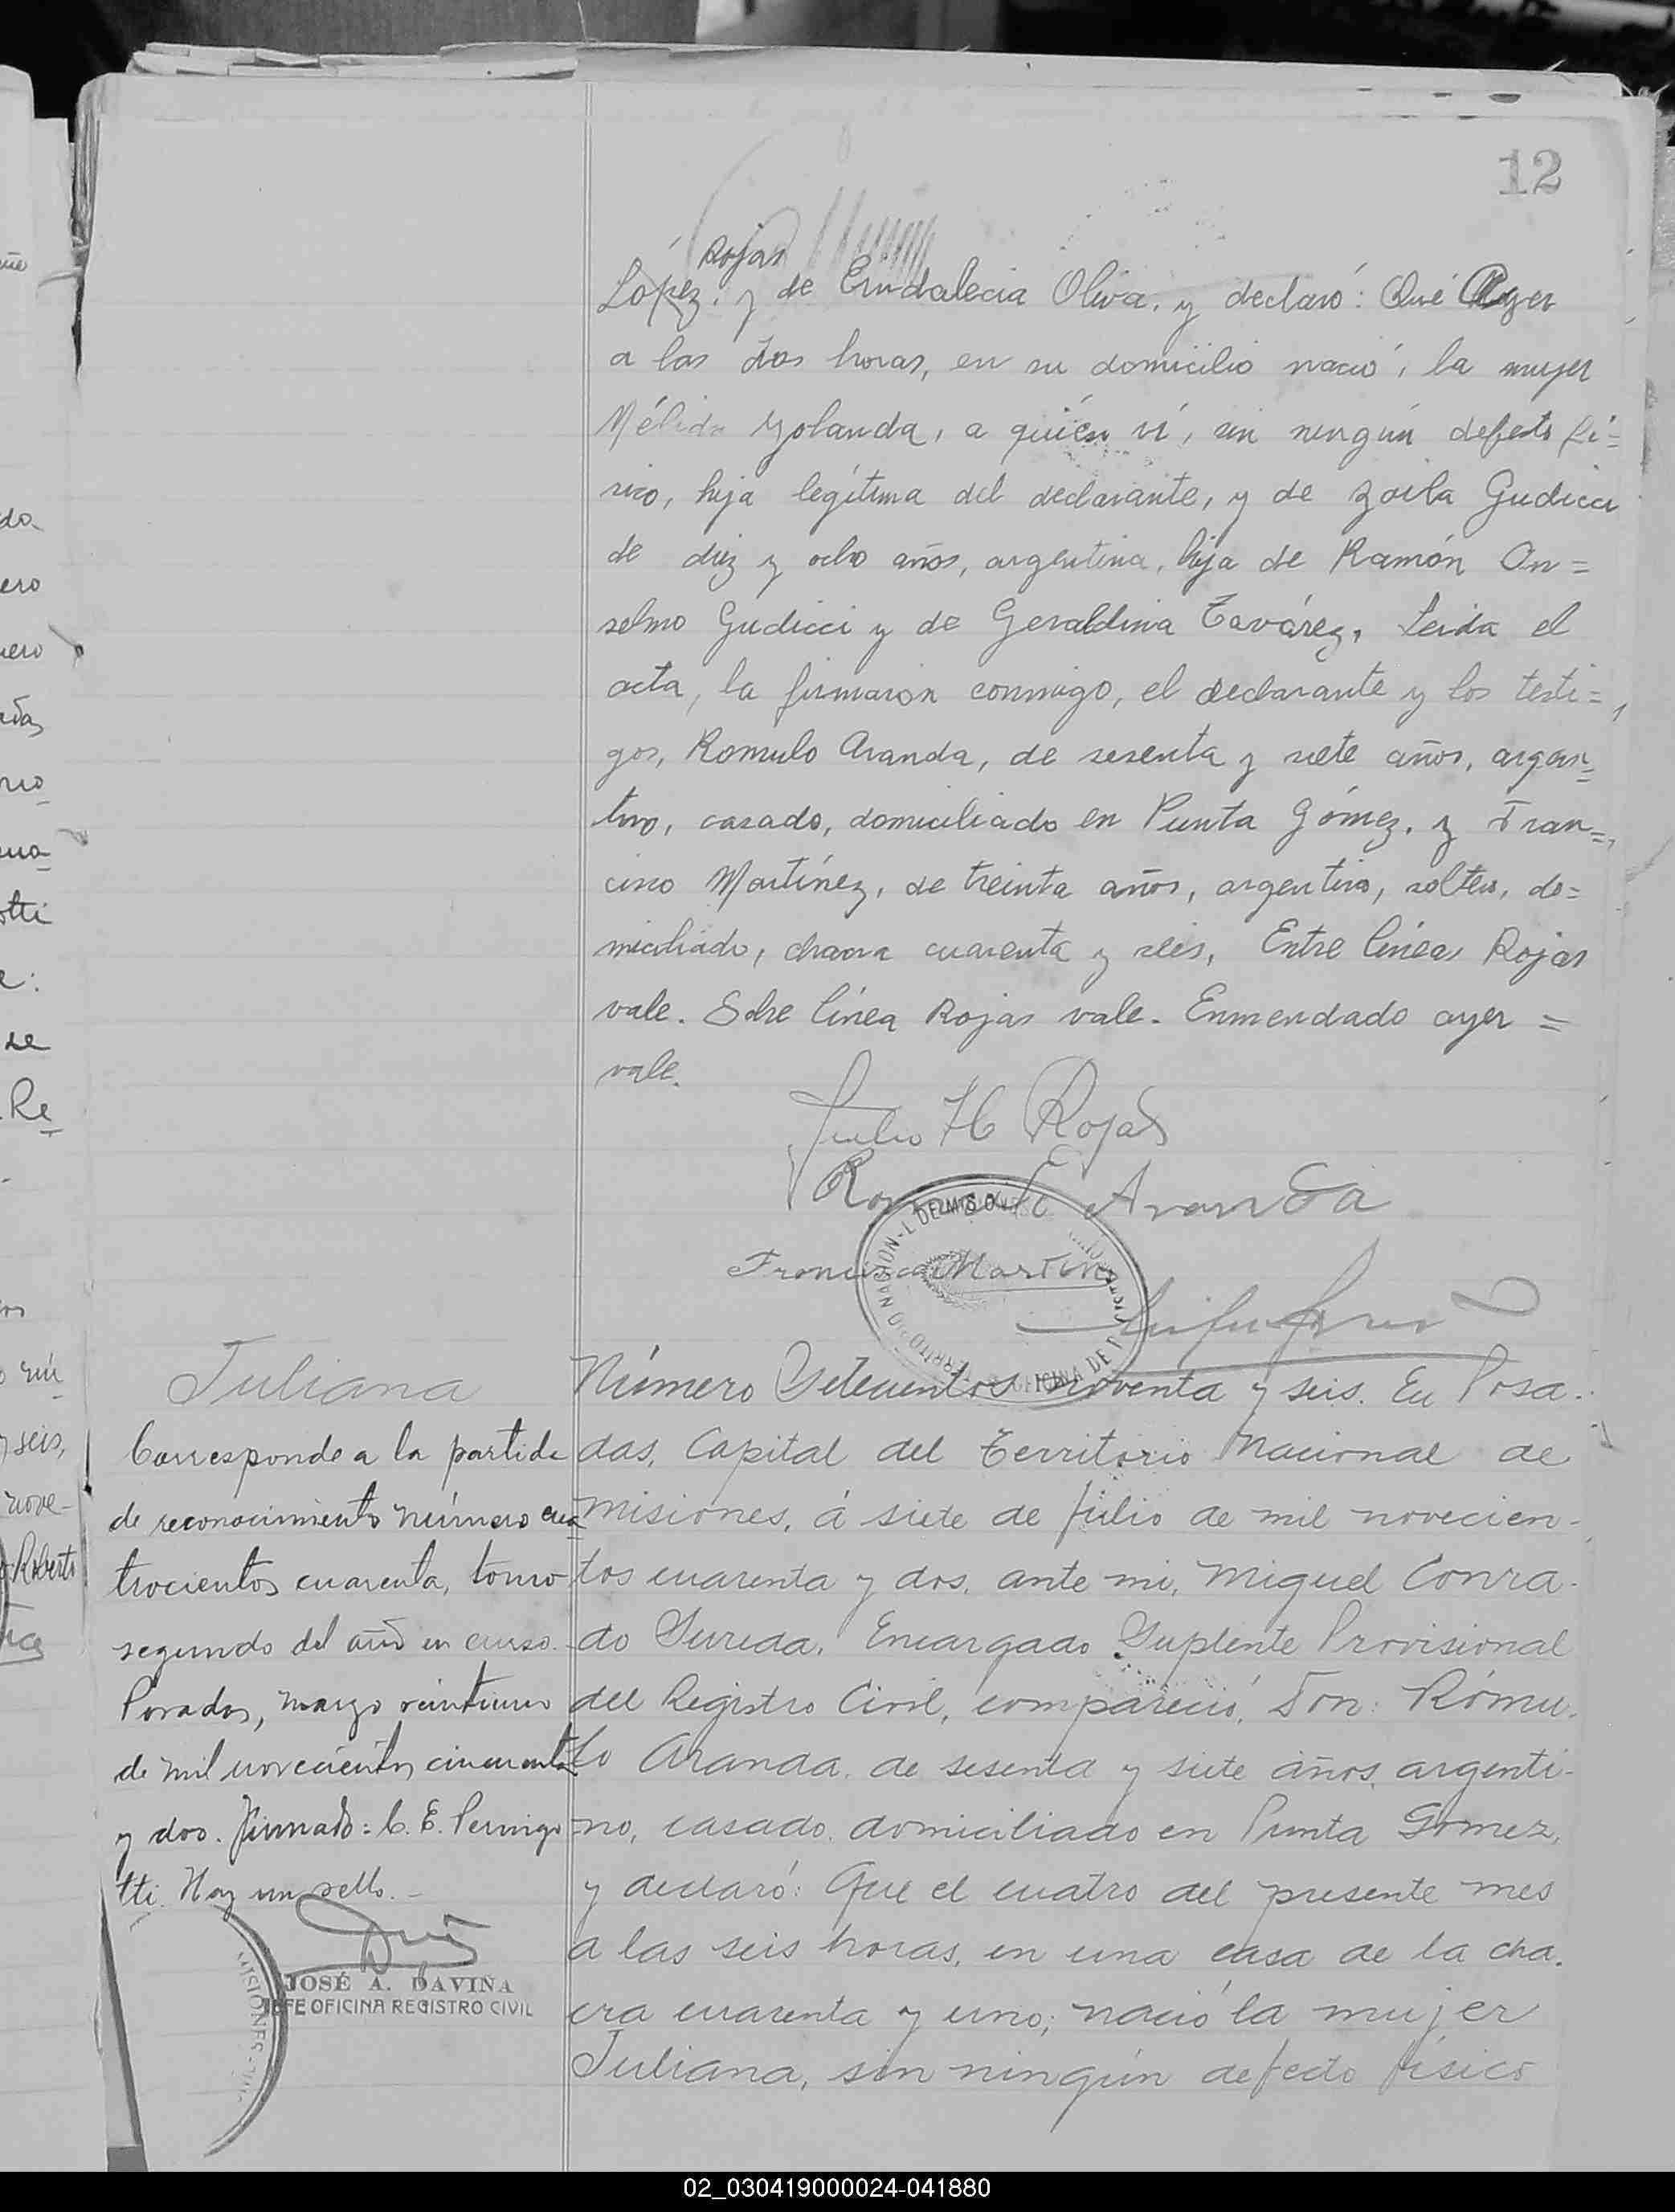 12
Rojas
López. y de Crindalecia Oliva. y declaró: Qué Ayer
a las dos horas, en su domicilio nació, la mujer
Mélida Yolanda, a quién ví, sin ningún defecto fí=
sico, hija legítima del declarante, y de Zoila Gudicci
de diez y ocho años, argentina, hija de Ramón An=
selmo Gudicci y de Geraldina Tavárez, Leida el
acta, la firmaron conmigo, el declarante y los testi=
gos, Romulo Aranda, de sesenta y siete años, argen=
tino, casado, domiciliado en Punta Gómez. y Fran=
cisco Martínez, de treinta años, argentino, soltero, do=
miciliado, chacra cuarenta y seis, Entre líneas Rojas
vale. Sobre línea Rojas vale. Enmendado ayer =
vale.
Julio H Rojas
Aranda
Francisco Martinez
Juliana
Corresponde a la partida
de reconocimiento número cua
trocientos cuarenta, tomo
segundo del año en curso.
Posadas, marzo veintiuno
de mil novecientos cincuenta
y dos. Firmado: C. E. Pernigo
tti. Hay un sello.-
JOSÉ A. DAVIÑA
JEFE OFICINA REGISTRO CIVIL
MISIONES
Número Setecientos noventa y seis. En Posa.
das, Capital del Territorio Nacional de
Misiones, á siete de Julio de mil novecien-
tos cuarenta y dos, ante mi, Miguel Conra-
do Sureda, Encargado Suplente Provisional
del Registro Civil, compareció, Don: Rómu.
lo Aranda, de sesenta y siete años, argenti-
no, casado, domiciliado en Punta Gomez,
y declaró: Que el cuatro del presente mes
a las seis horas, en una casa de la cha.
cra cuarenta y uno; nació la mujer
Juliana, sin ningún defecto físico
02_030419000024-041880